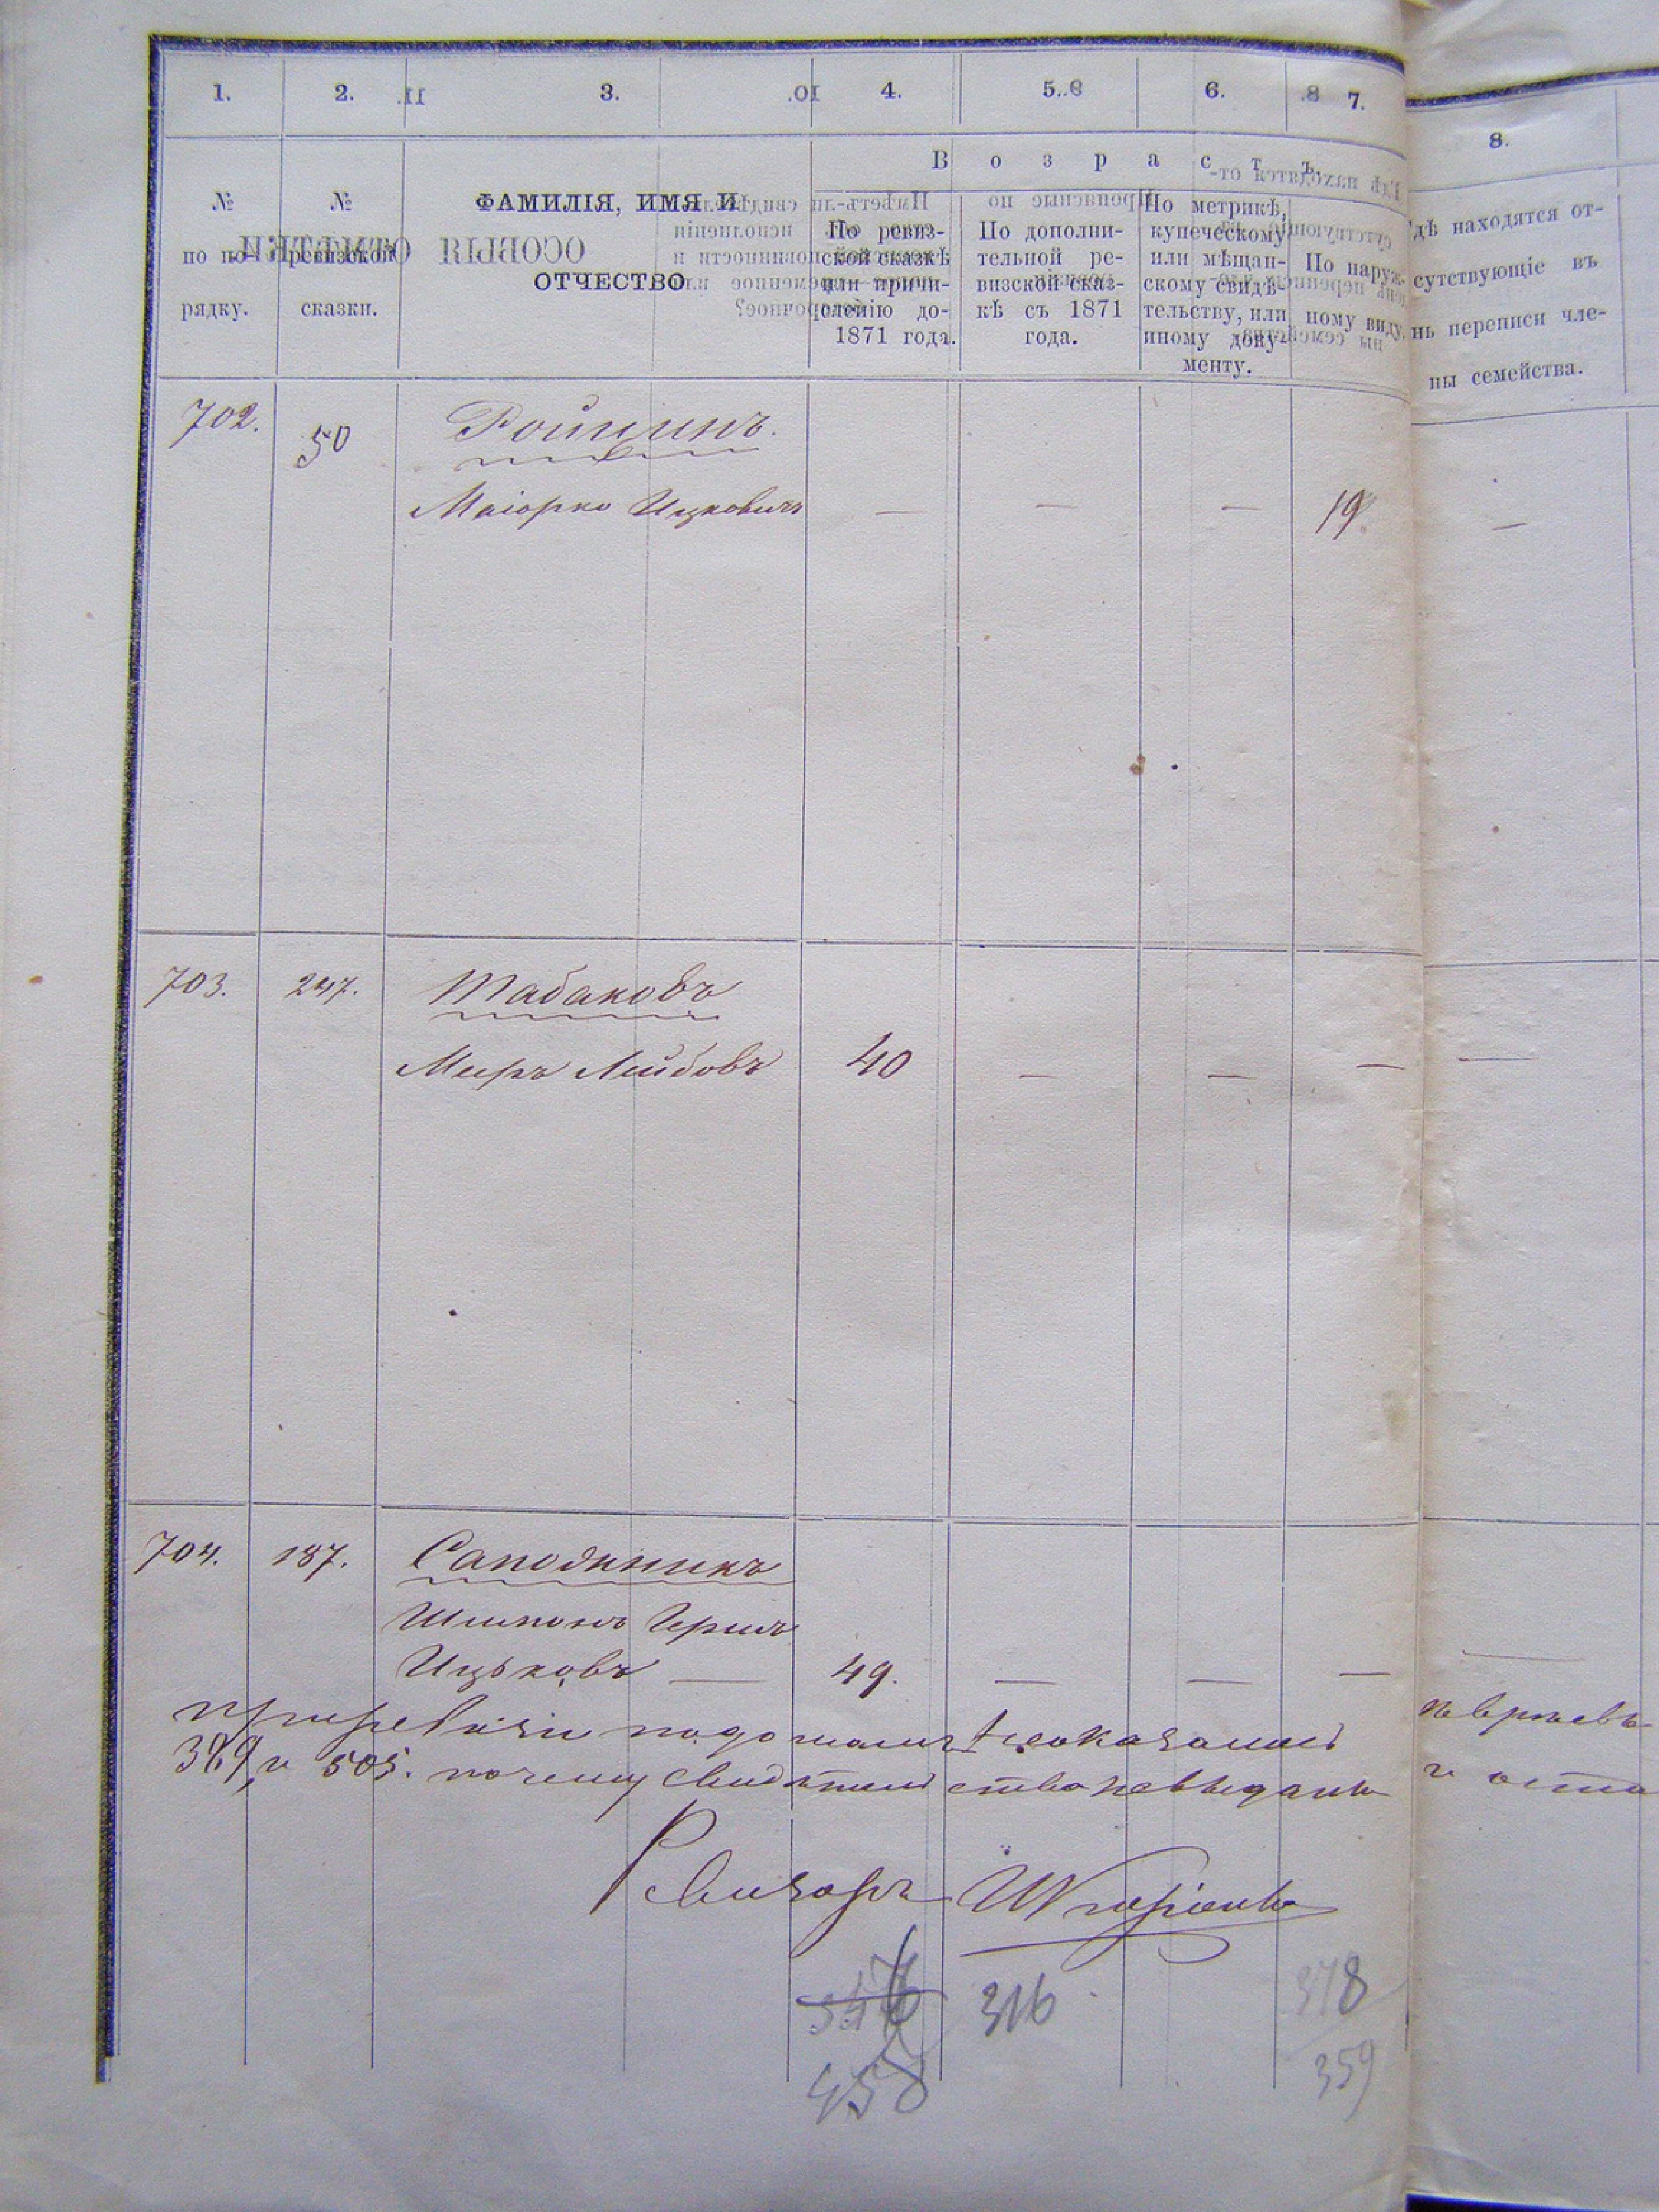 1. 2. 3. 4. 5. 6. 7. 8.
В о з р а с т ъ.
№ по по- рядку.
№ ревизской сказки.
ФАМИЛІЯ, ИМЯ И
ОТЧЕСТВО
По ревиз-
ской сказкѣ
или причи-
сленію до
1871 года.
По дополни-
тельной ре-
визской сказ-
кѣ съ 1871
года.
По метрикѣ,
купеческому
или мѣщан-
скому свидѣ-
тельству, или
иному доку-
менту.
По наруж-
ному виду.
дѣ находятся от-
сутствующіе въ
нь переписи чле-
ны семейства.
702. 50 Ройтинъ.
Маіорко Ицковичъ — — — 19. —
703. 247. Табаковъ
Меръ Лейбовъ 40 — — — —
704. 187. Саподникъ
Шимонъ Герша
Ицьковъ — 49. — — — —
389, и 505. почему свидѣтельство не выдано
Ревизоръ
346 316 378
458 359